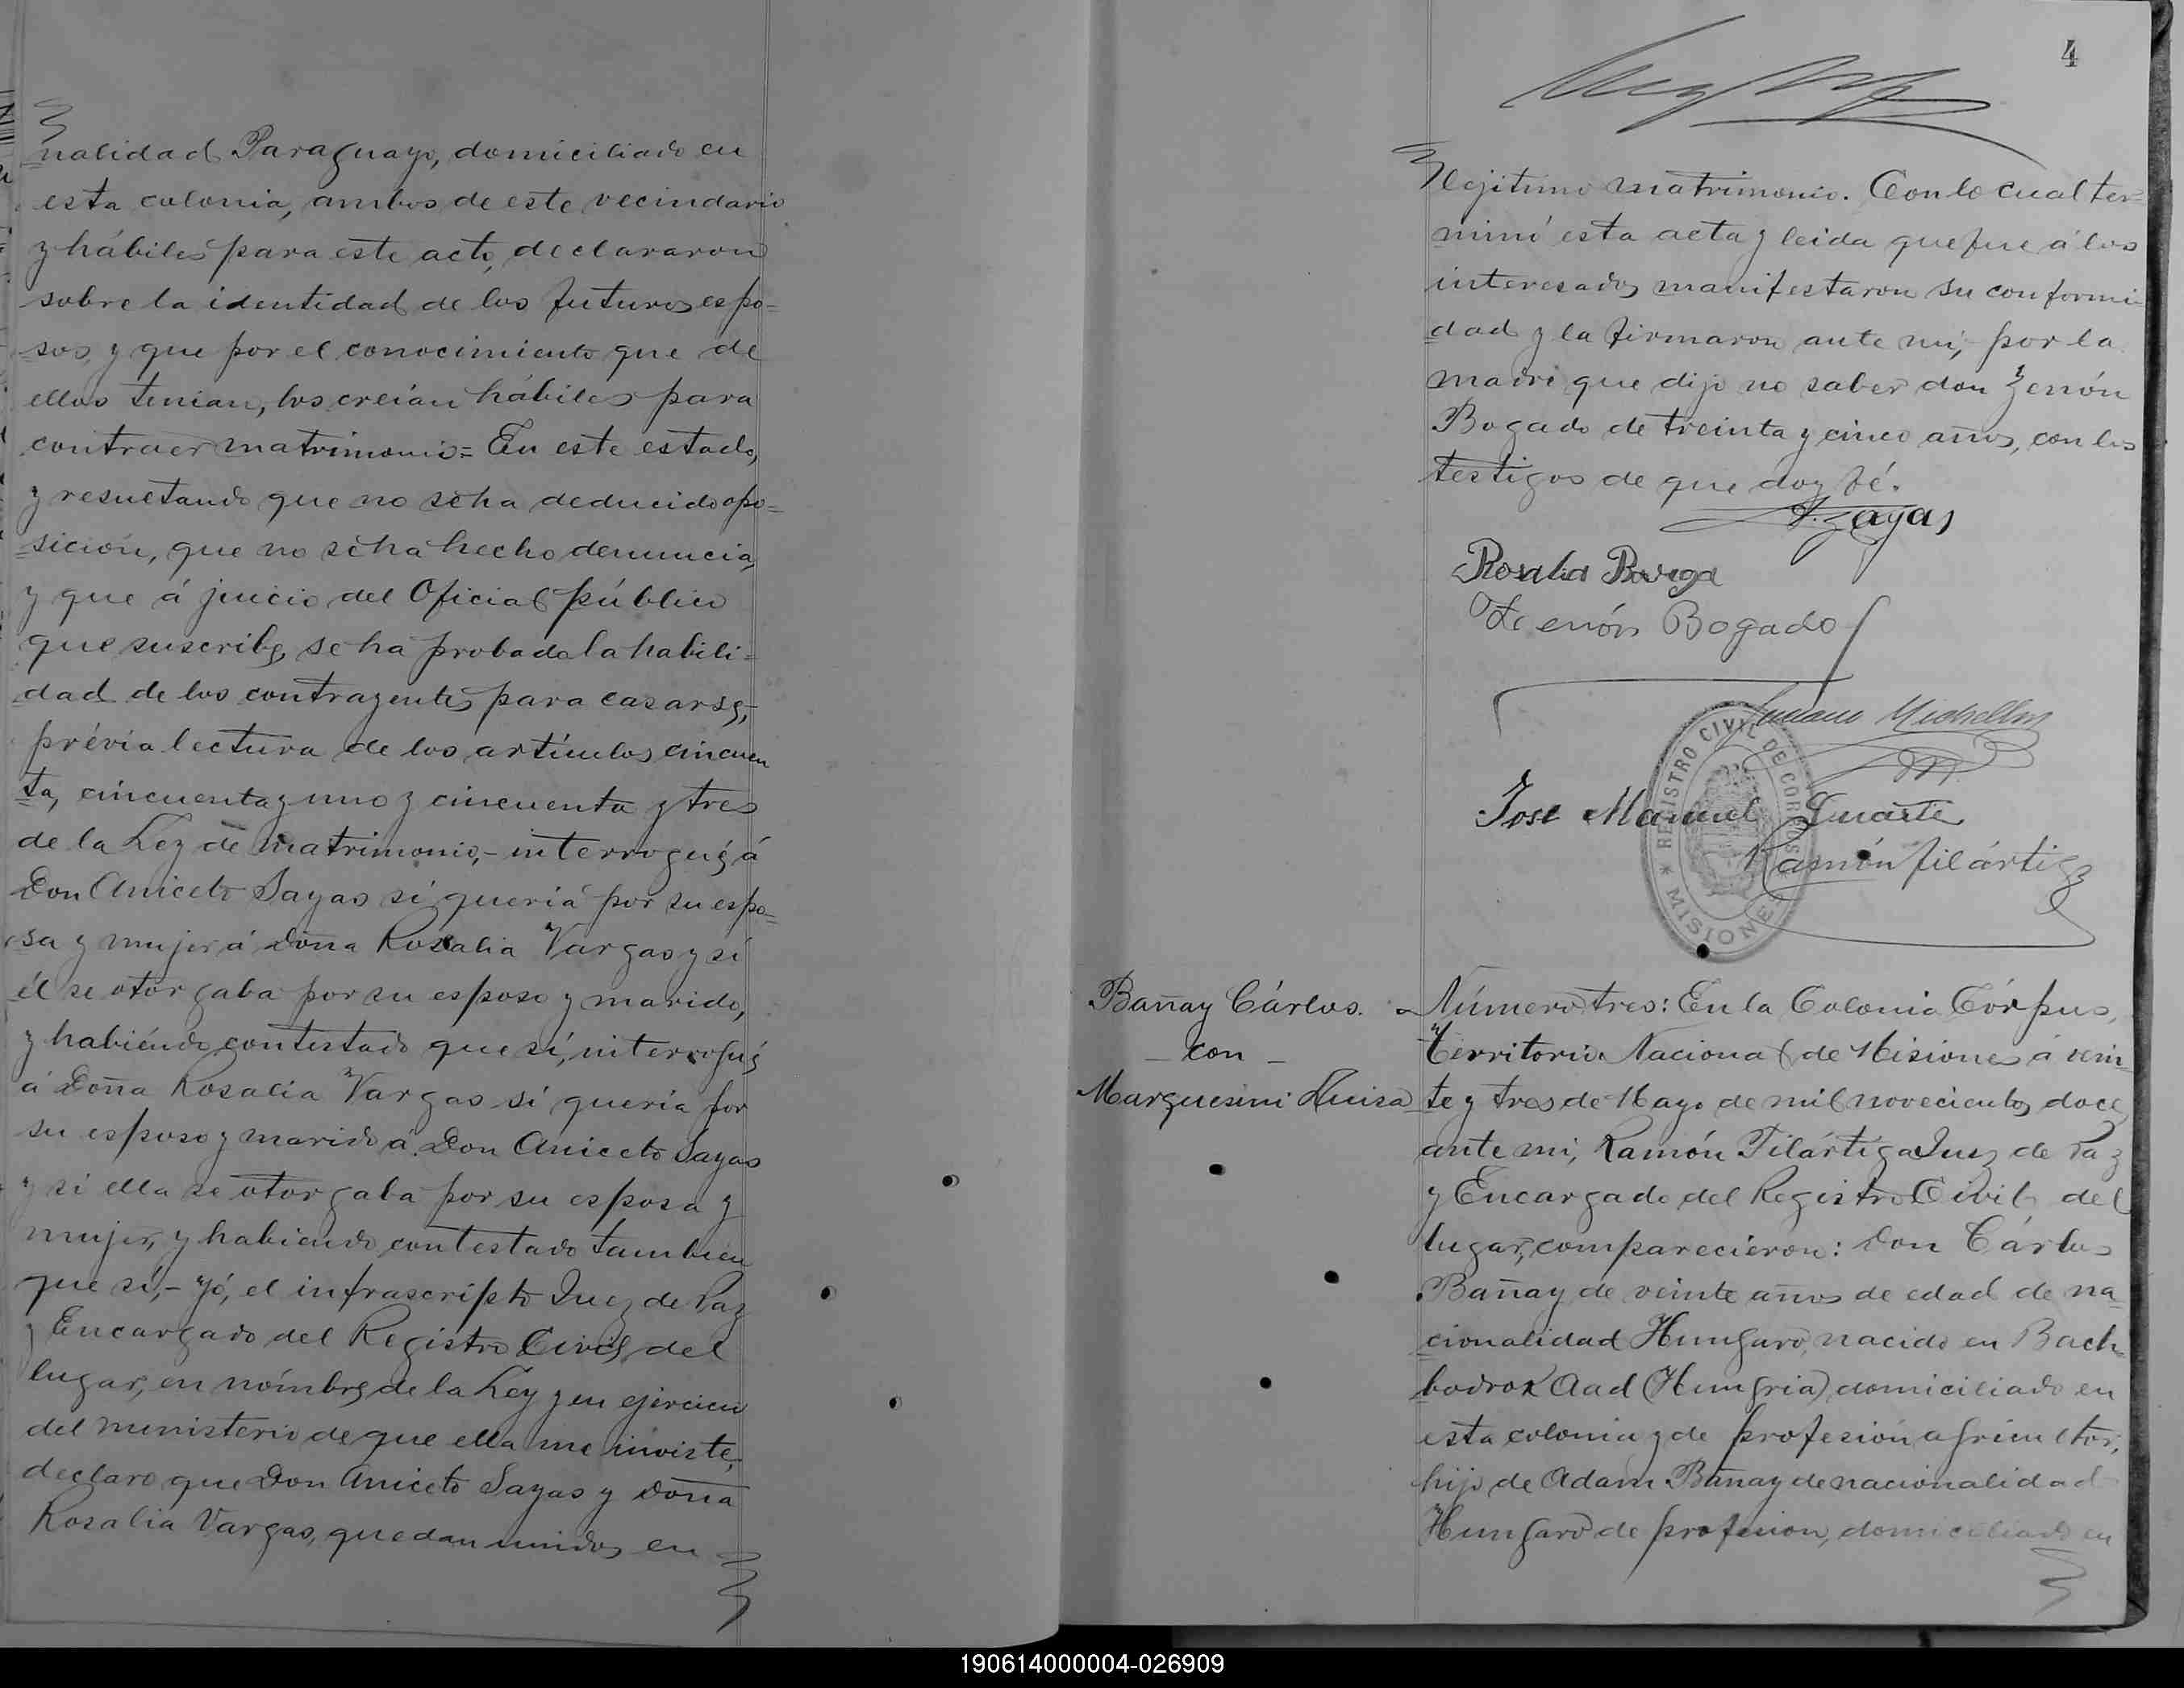 nalidad Paraguayo, domiciliado en
esta colonia, ambos de este vecindario
y hábiles para este acto, declararon
sobre la identidad de los futuros espo=
sos, y que por el conocimiento que de
ellos tenian, los creian hábiles para
contraer matrimonio= En este estado,
y resultando que no se ha deducido opo=
sición, que no se ha hecho denuncia,
y que á juicio del Oficial público
que suscribe, se ha probado la habili=
dad de los contrayentes para casarse,
prévia lectura de los artículos cincuen
ta, cincuenta y uno y cincuenta y tres
de la Ley de matrimonio,- interrogué, á
Don Aniceto Sayas si queriá por su espo=
sa y mujer á doña Rosalia Vargas y si
él se otorgaba por su esposo y marido,
y habiéndo contestado que sí, interrogué
á Doña Rosalia Vargas si queria por
su esposo y marido á Don Aniceto Sayas
y si ella se otorgaba por su esposa y
mujer, y habiendo contestado tambien
que sí,- Yó, el infrascripto Juez de Paz
y Encargado del Registro Civil, del
lugar, en nómbre de la Ley y en ejercicio
del ministerio de que ella me inviste,
declaro que Don Aniceto Sayas y Doña
Rosalia Vargas, quedan unidos en
4
legitimo matrimonio. Con lo cual ter=
minó esta acta y leida que fue á los
interesados manifestaron su conformi=
dad y la firmaron ante mi, por la
madre que dijo no saber don Zenón
Bogado de treinta y cinco años, con los
testigos de que doy fé.
A. Zayas
Rosalia
Zenón Bogado
Jose Manuel Duarte
Ramón Filártiga
REGISTRO CIVIL DE CORPUS
* MISIONES *
Bañay Cárlos.
- con -
Marquesini Luisa
Número tres: En la Colonia Córpus,
Territorio Nacional de Misiones á vein=
te y tres de Mayo de mil novecientos doce,
ante mi, Ramón Filártiga Juez de Paz
y Encargado del Registro Civil del
lugar, comparecieron: Don Cárlos
Bañay de veinte años de edad de na=
cionalidad Hungaro, nacido en Bach=
bodrox Aad (Hungria) domiciliado en
esta colonia y de profesión agricultor,
hijo de Adam Bañay de nacionalidad
Hungaro de profesion, domiciliado en
190614000004-026909